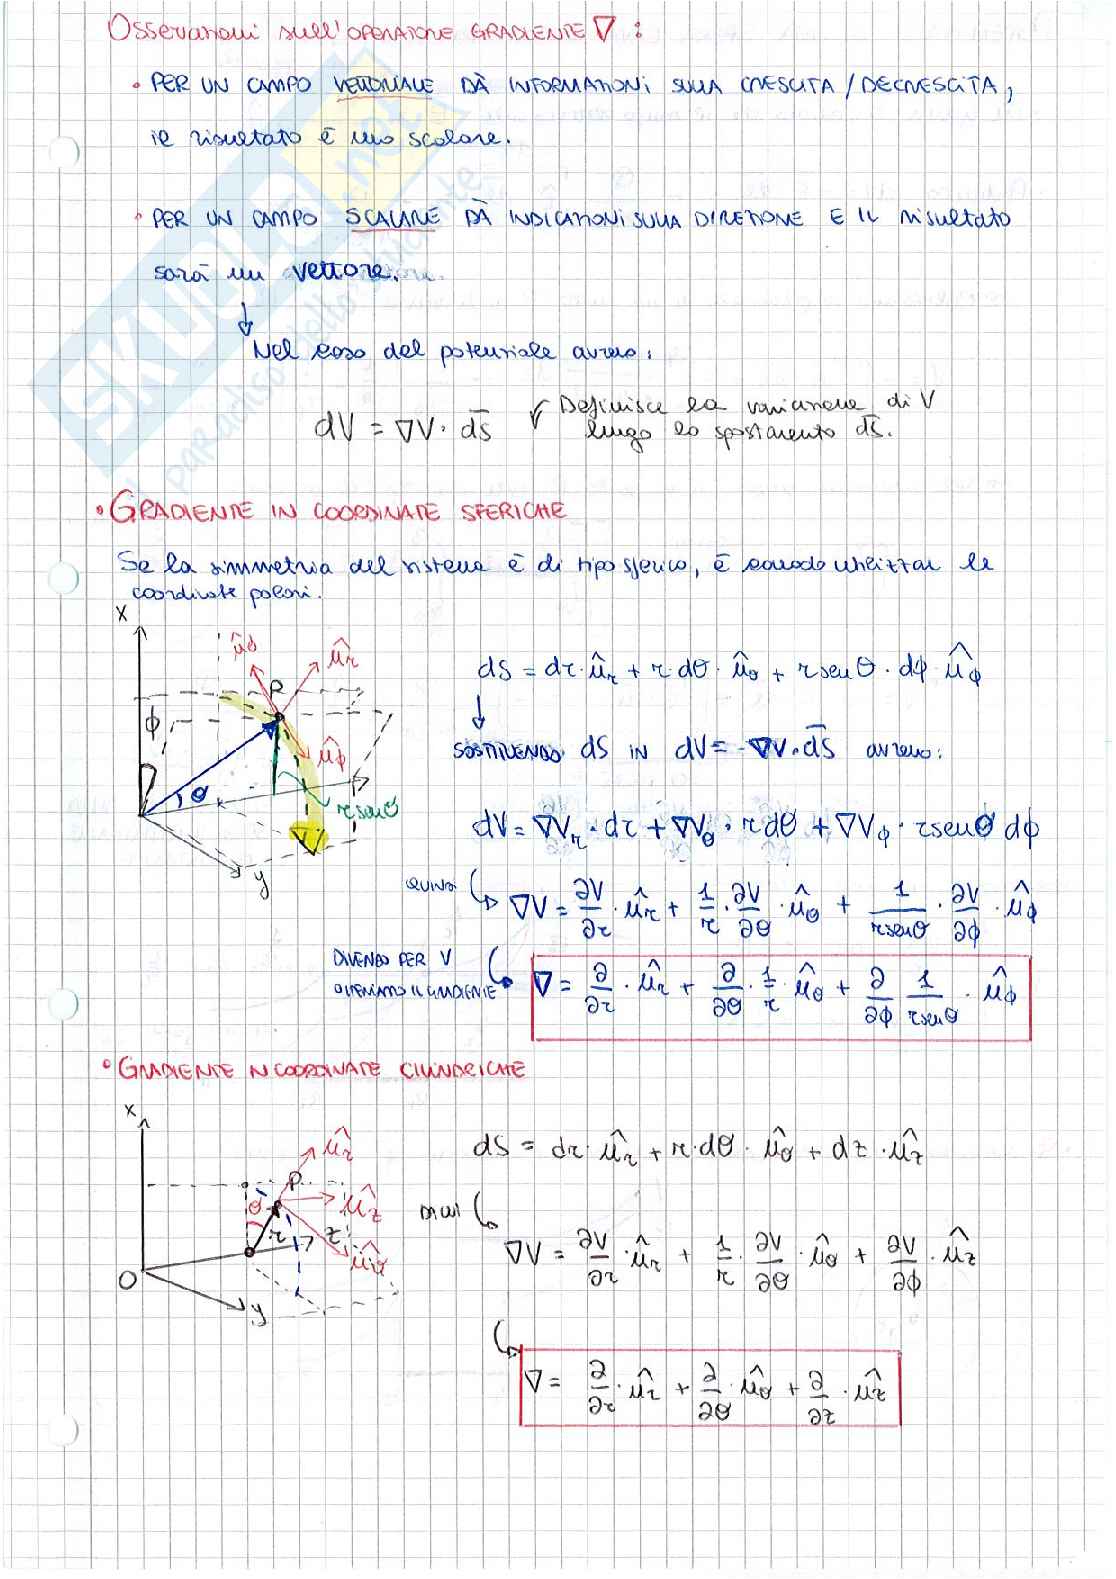 Osservazioni sull'OPERATORE GRADIENTE ∇ :
• PER UN CAMPO VETTORIALE DÀ INFORMAZIONI SULLA CRESCITA / DECRESCITA,
il risultato è uno scalare.
• PER UN CAMPO SCALARE DÀ INDICAZIONI SULLA DIREZIONE E IL risultato
sarà un vettore.
↓
Nel caso del potenziale avremo:
dV = ∇V · d̄s̄
Definisce la variazione di V
lungo lo spostamento d̄s̄.
• GRADIENTE IN COORDINATE SFERICHE
Se la simmetria del sistema è di tipo sferico, è comodo utilizzar le
coordinate polari.
X
û_θ
û_r
P
ϕ
û_ϕ
θ
r senθ
y
dS = dr · û_r + r · dθ · û_θ + r senθ · dϕ · û_ϕ
↓
SOSTITUENDO dS IN dV = -∇V · d̄s̄ avremo:
dV = ∇V_r · dr + ∇V_θ · r dθ + ∇V_ϕ · r senθ dϕ
quindi
∇V = ∂V/∂r · û_r + 1/r · ∂V/∂θ · û_θ + 1/r senθ · ∂V/∂ϕ · û_ϕ
DIVIDENDO PER V
OTTENIAMO IL GRADIENTE
∇ = ∂/∂r · û_r + ∂/∂θ · 1/r û_θ + ∂/∂ϕ 1/r senθ · û_ϕ
• GRADIENTE IN COORDINATE CILINDRICHE
X
û_r
P
θ
û_z
r
z
û_θ
O
y
dS = dr · û_r + r · dθ · û_θ + dz · û_z
∇V = ∂V/∂r · û_r + 1/r · ∂V/∂θ · û_θ + ∂V/∂ϕ · û_z
∇ = ∂/∂r · û_r + ∂/∂θ · û_θ + ∂/∂z · û_z
SKUOLA.net
il paradiso dello studente